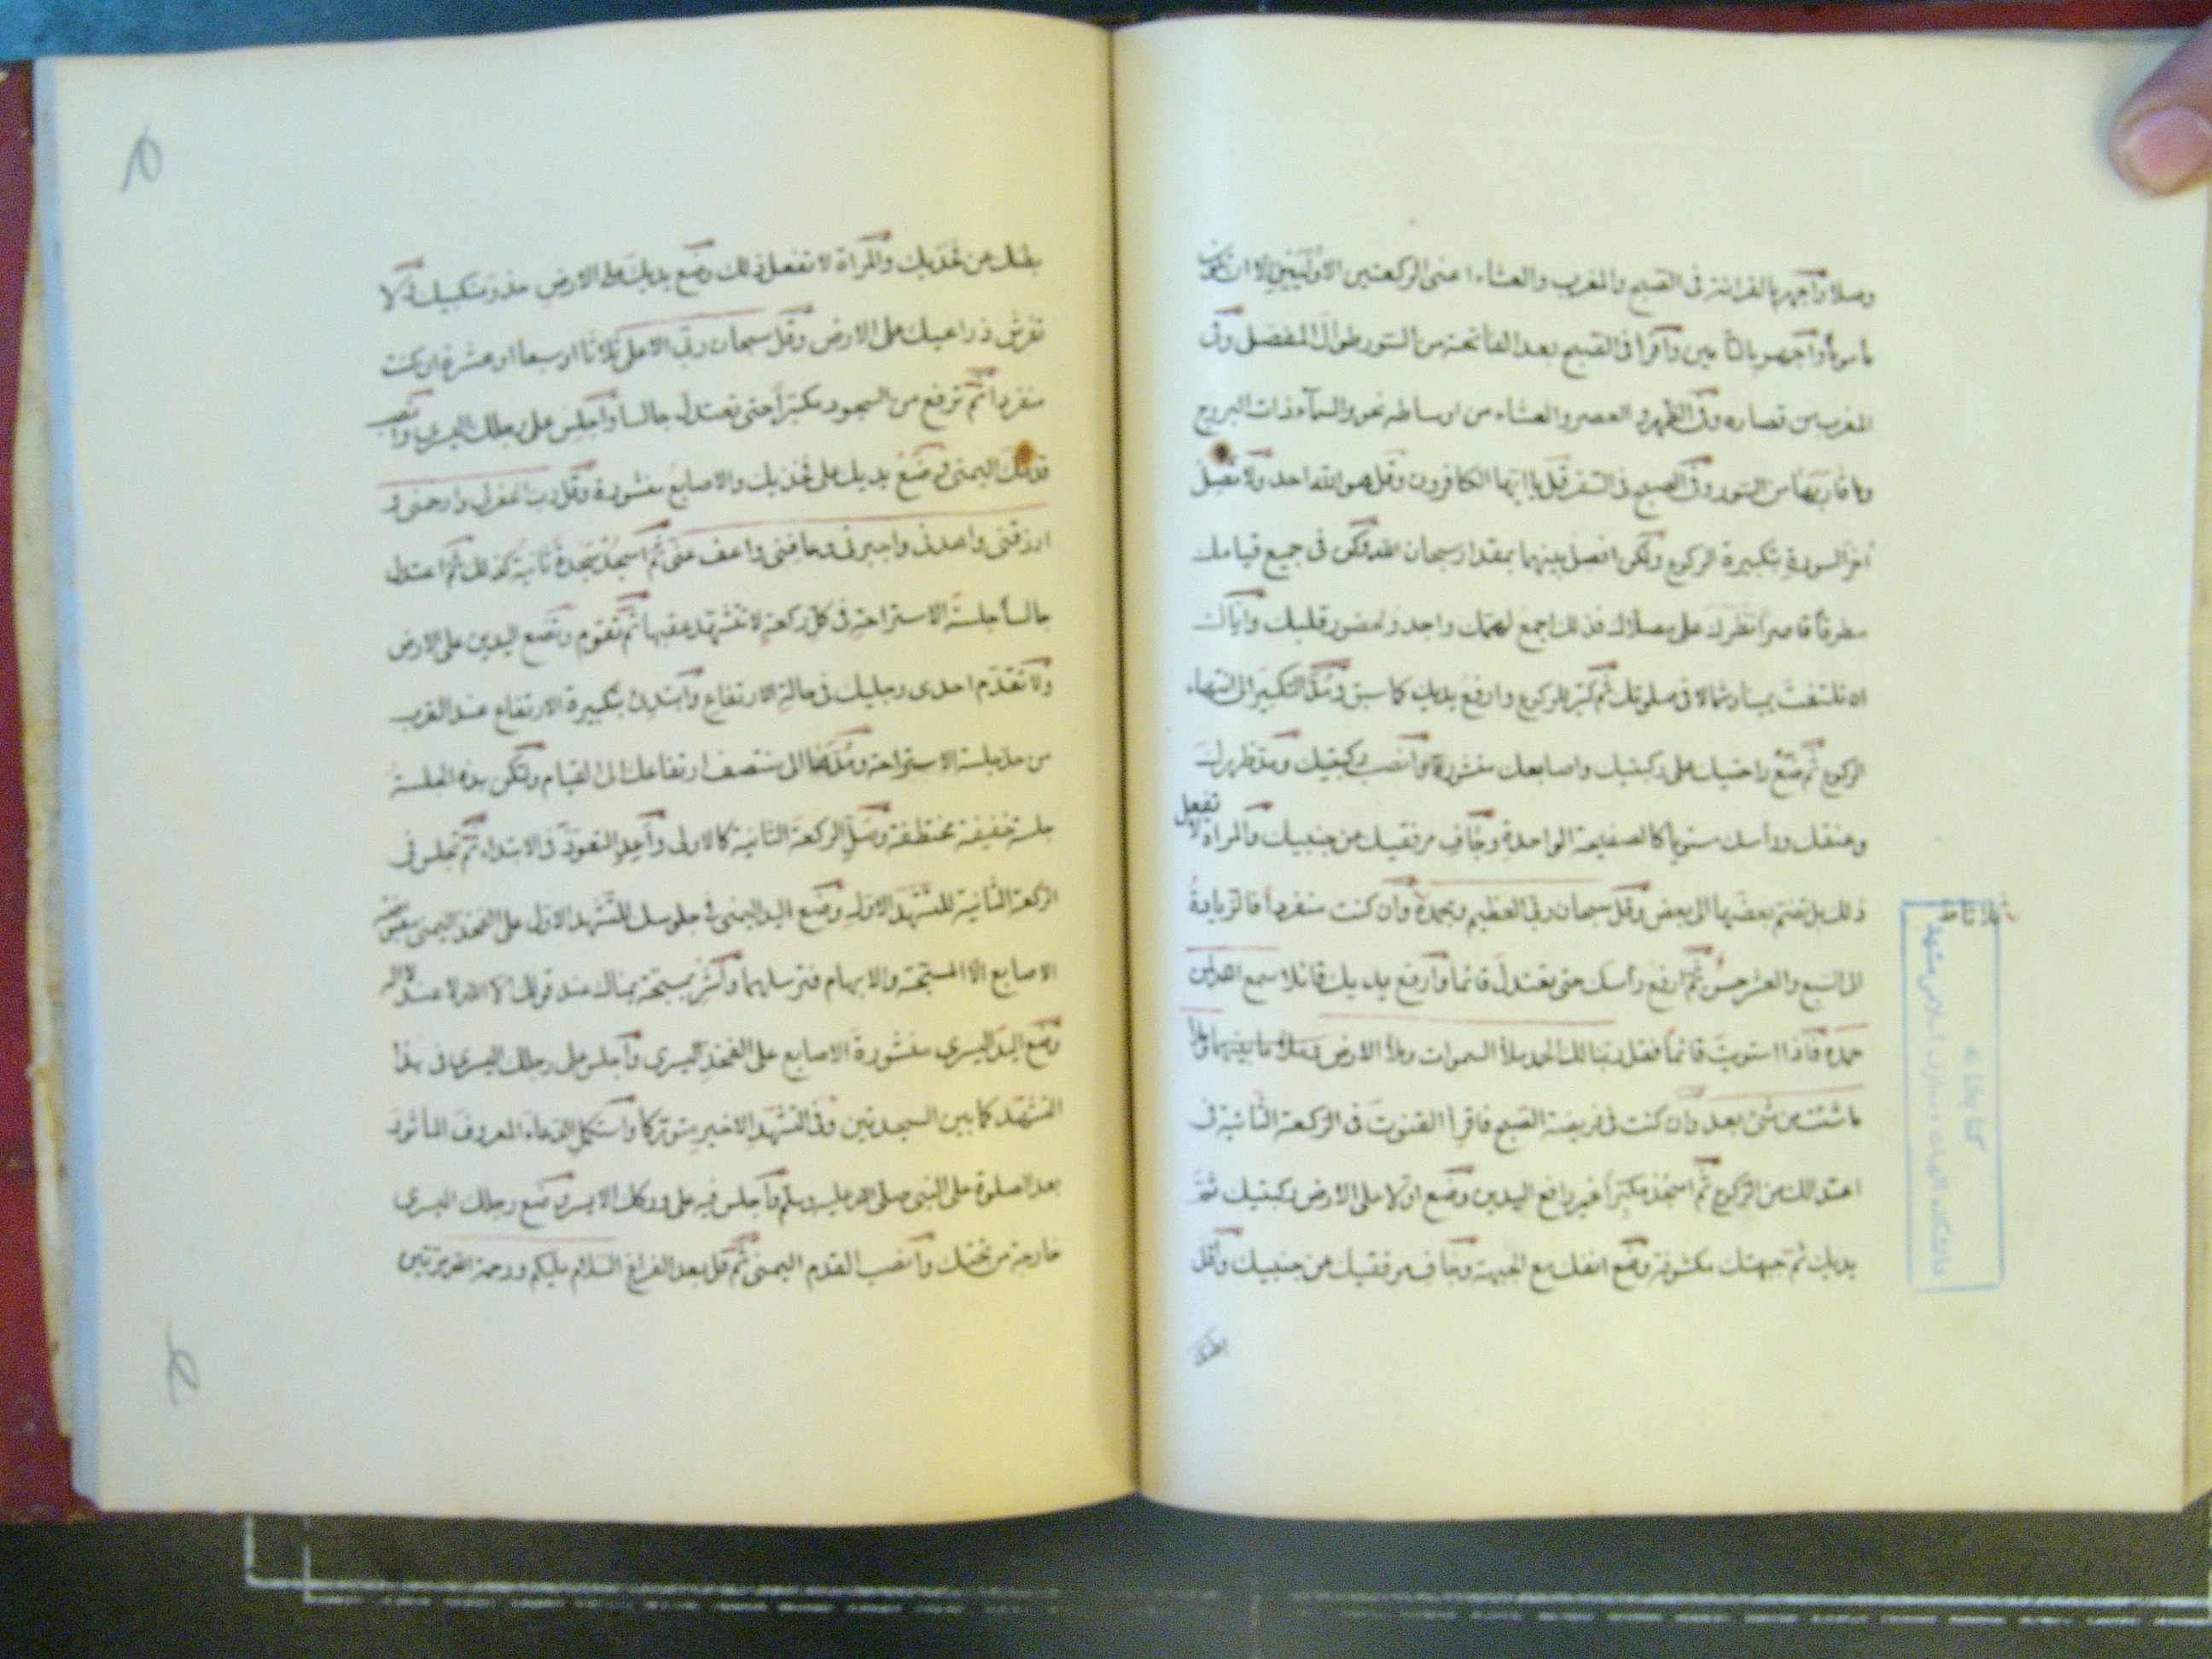 وصلا واجهر بالقرائة فى الصبح والمغرب والعشاء اعنى الركعتين الاوليين الا ان تكون
مأموما واجهر بالتأمين واقرأ فى الصبح بعد الفاتحة من السور طوال المفصل وفى
المغرب من قصاره وفى الظهر والعصر والعشاء من اوساطه نحو والسمآء ذات البروج
وما قاربها من السور وفى الصبح فى السفر قل يا ايها الكافرون وقل هو الله احد ولا تصل
آخر السورة بتكبيرة الركوع ولكن افصل بينهما بمقدار سبحان الله وكن فى جميع قيامك
مطرقا قاصرا نظرك على مصلاك فذلك اجمع لهمك واجدر لحضور قلبك واياك
ان تلتفت يمينا وشمالا فى صلوتك ثم كبر للركوع وارفع يديك كما سبق ومد التكبير الى انتهاء
الركوع ثم ضع راحتيك على ركبتيك واصابعك منشورة وانصب ركبتيك ومد ظهرك
وعنقك ورأسك مستويا كالصفيحة الواحدة وجاف مرفقيك عن جنبيك والمرأة لا تفعل
ذلك بل تضم بعضها الى بعض وقل سبحان ربى العظيم وبحمده وان كنت منفردا فالزيادة
ثلاثا
الى السبع والعشر حسن ثم ارفع رأسك حتى تعتدل قائما وارفع يديك قائلا سمع الله لمن
حمده فاذا استويت قائما فقل ربنا لك الحمد ملأ السموات وملأ الارض وملأ ما بينهما وملأ
ما شئت من شئ بعد وان كنت فى فريضة الصبح فاقرأ القنوت فى الركعة الثانية فى
اعتدالك من الركوع ثم اسجد مكبرا غير رافع اليدين وضع اولا على الارض ركبتيك ثم
يديك ثم جبهتك مكشوفة وضع انفك مع الجبهة وجاف مرفقيك عن جنبيك واقل
بطنك
بطنك عن فخذيك والمرأة لا تفعل ذلك وضع يديك على الارض حذو منكبيك ولا
تفرش ذراعيك على الارض وقل سبحان ربى الاعلى ثلاثا او سبعا او عشرة ان كنت
منفردا ثم ترفع من السجود مكبرا حتى تعتدل جالسا واجلس على رجلك اليسرى وانصب
قدمك اليمنى وضع يديك على فخذيك والاصابع منشورة وقل رب اغفرلى وارحمنى و
ارزقنى واهدنى واجبرنى وعافنى واعف عنى ثم اسجد سجدة ثانية كذلك ثم اعتدل
جالسا جلسة الاستراحة فى كل ركعة لا تتشهد عقبها ثم تقوم وتضع اليدين على الارض
ولا تقدم احدى رجليك فى حالة الارتفاع وابتدئ بتكبيرة الارتفاع عند القرب
من حد جلسة الاستراحة ومدها الى منتصف ارتفاعك الى القيام ولتكن هذه الجلسة
جلسة خفيفة مختطفة وصل الركعة الثانية كالاولى واعد التعوذ فى الابتداء ثم تجلس فى
الركعة الثانية للتشهد الاول وضع اليد اليمنى فى جلوسك للتشهد الاول على الفخذ اليمنى مقبوضة
الاصابع الا المسبحة والابهام فترسلهما واشر بمسبحة يمناك عند قولك الا الله لا عند لا اله
وضع اليد اليسرى منشورة الاصابع على الفخذ اليسرى واجلس على رجلك اليسرى فى هذا
التشهد كما بين السجدتين وفى التشهد الاخير متوركا واستكمل الدعاء المعروف المأثور
بعد الصلوة على النبى صلى الله عليه وسلم واجلس فيه على وركك الايسر وضع رجلك اليسرى
خارجة من تحتك وانصب القدم اليمنى ثم قل بعد الفراغ السلام عليكم ورحمة الله مرتين